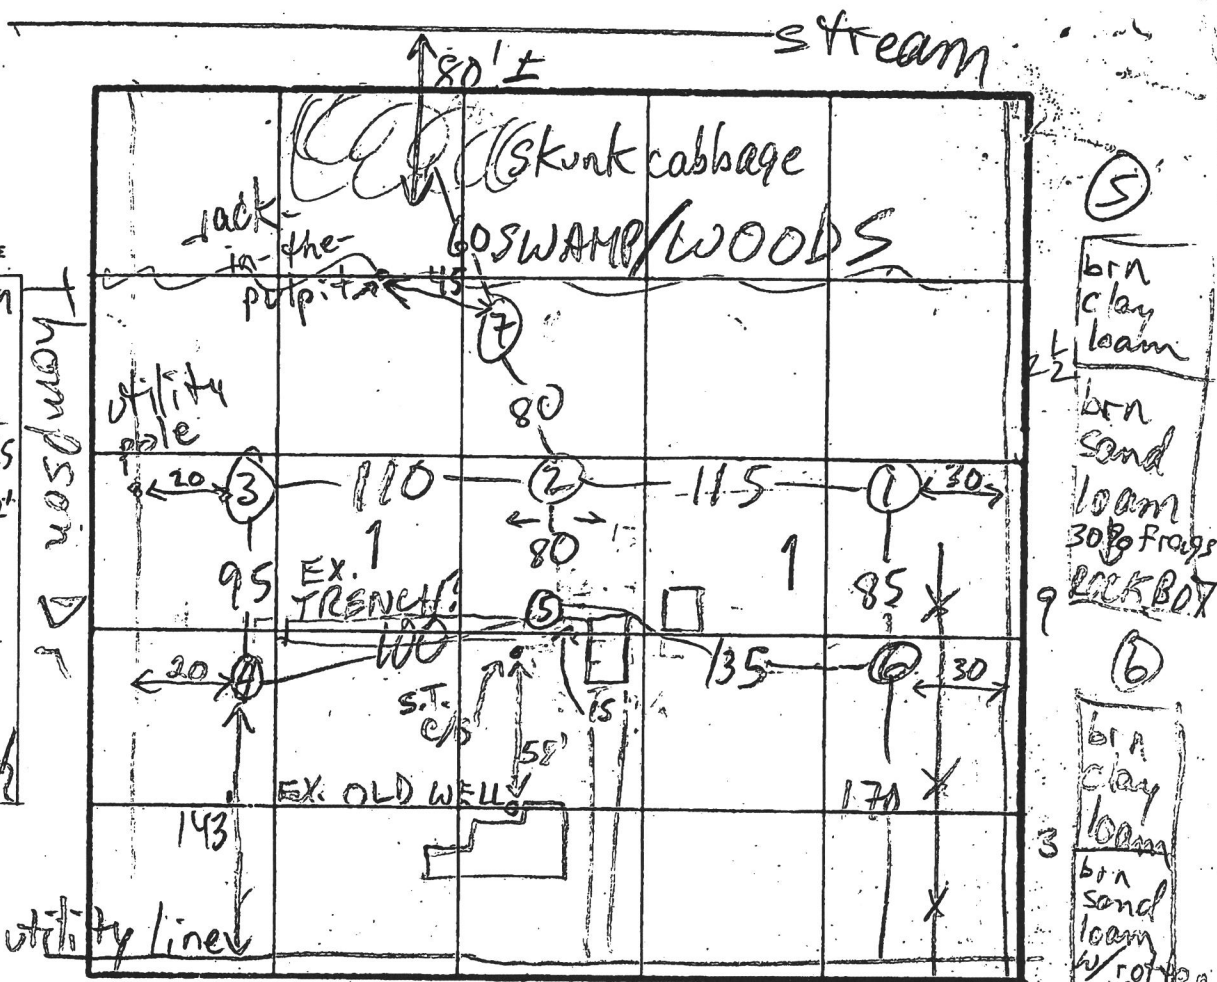 stream
80' ±
skunk cabbage
Jack-
in-the-
pulpit
60
SWAMP/WOODS
45
7
80
utility
pole
20
3
110
2
115
1
30
80
1
1
95
EX.
TRENCH?
5
85
100
135
20
4
6
30
S.T.
c/o
15
58'
EX. OLD WELL
170
143'
utility line
Thompson
5
brn
clay
loam
2 1/2
brn
sand
loam
30% frags
9
6
brn
clay
loam
3
brn
sand
loam